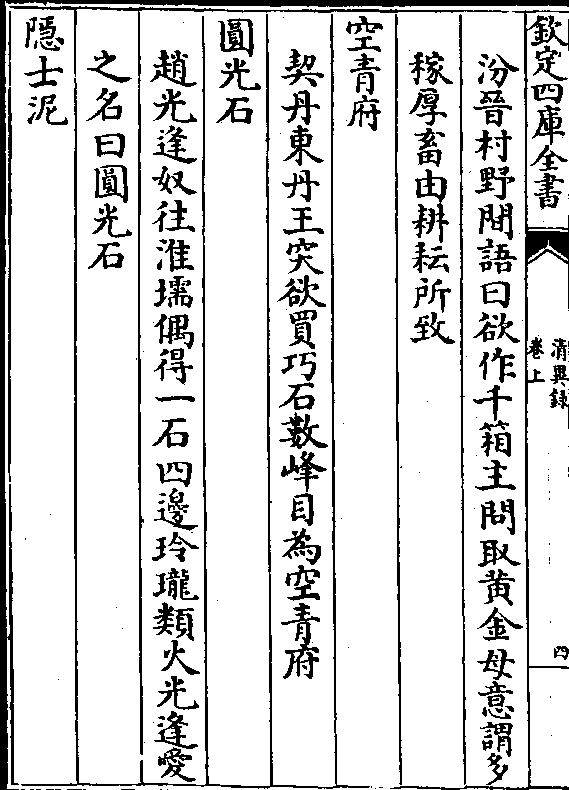 欽定四庫全書
清異錄
卷上
四
汾晉村野間語曰欲作千箱主問取黄金母意謂多
稼厚畜由耕耘所致
空青府
契丹東丹王突欲買巧石數峰目為空青府
圓光石
趙光逢奴往淮壖偶得一石四邊玲瓏類火光逢愛
之名曰圓光石
隠士泥